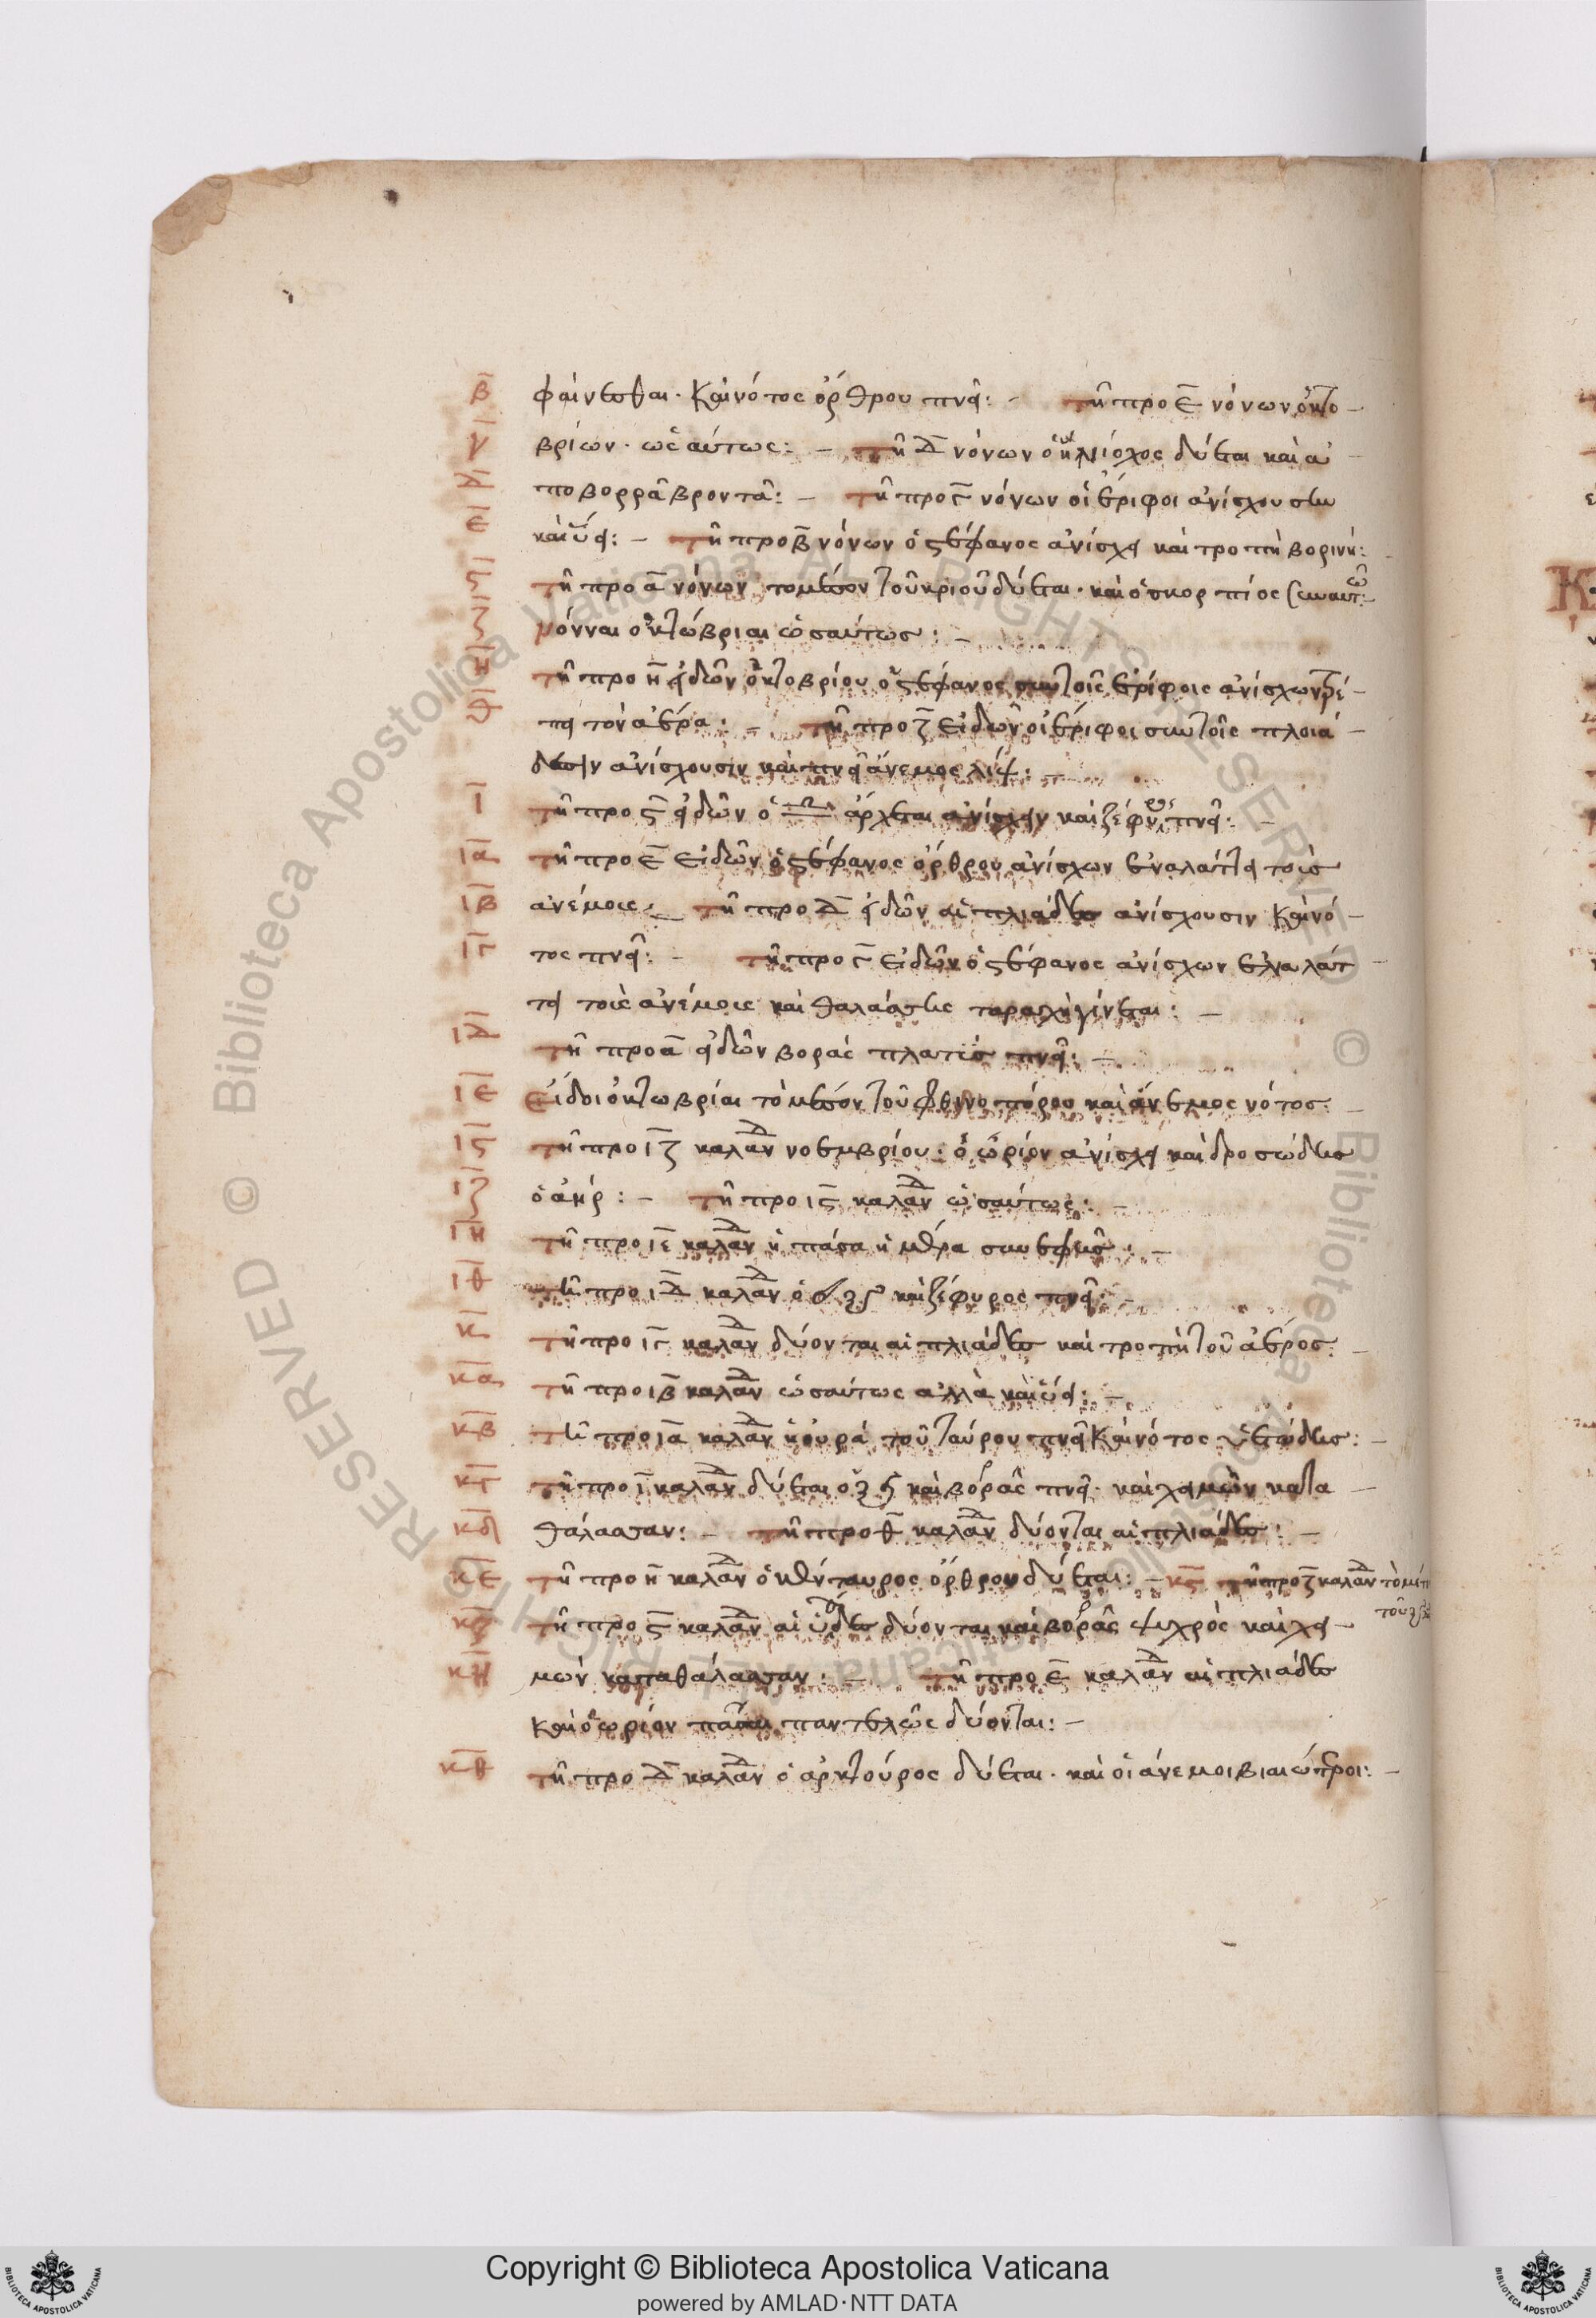 β φαίνεσθαι· καὶ νότος ὄρθρου πνεῖ: – τῆ προ ε νόνων ὀκτο –
γ βρίων· ὡς αύτως: – τῆ δ νόνων ὁ ἡνίοχος δύεται καὶ ἀ –
δ πο βορρᾶ βροντᾶ: – τῆ προ γ νόνων οἱ ἔριφοι ἀνίσχουσιν
ε καὶ ὕει: – τῆ προ β νόνων ὁ στέφανος ἀνίσχει καὶ τροπὴ βορινή: –
ς τῆ προ α νόνων τομέσον τοῦ κριοῦ δύεται· καὶ ὁ σκορπίος
ζ νόνναι ὀκτώβριαι ὡσαύτως: –
η τῆ προ η εἰδῶν ὀκτοβρίου ὁ στέφανος σὺν τοῖς ἐρίφοις ἀνίσχων τρέ –
θ πει τὸν ἀέρα: – τῆ προ ζ εἰδῶν οἱ ἔριφοι σὺν τοῖς πλοιά –
δεσιν ἀνίσχουσιν καὶ πνεῖ ἄνεμος λίψ: –
ι τῆ προ ς εἰδῶν ὁ ♎ ἄρχεται ἀνίσχειν καὶ ζέφυρος πνεῖ: –
ια τῆ προ ε εἰδῶν ὁ στέφανος ὄρθρου ἀνίσχων ἐναλάττει τοὺς
ιβ ἀνέμους: – τῆ προ δ εἰδῶν αἱ πλιάδες ἀνίσχουσιν καὶ νό –
ιγ τος πνεῖ: – τῆ προ γ εἰδῶν ὁ στέφανος ἀνίσχων ἐναλάτ –
τει τοὶς ἀνέμοις καὶ θαλάσσης ταραχὴ γίνεται: –
ιδ τῆ προ α εἰδῶν βορὰς πλατὺς πνεῖ: –
ιε Εἴδοι ὀκτωβρίαι τὸ μέσον τοῦ φθινοπόρου καὶ ἄνεμος νότος: –
ις τῆ προ ιζ καλανδῶν νοεμβρίου: ὁ ὠρίον ἀνίσχει καὶ δροσώδης
ιζ ὁ ἀήρ: – τῆ προ ις καλανδῶν ὡσαύτως: –
ιη τῆ προ ιε καλανδῶν ἡ πάσα ἡμέρα συνεφής: –
ιθ τῆ προ ιδ καλανδῶν ὁ καὶ ζέφυρος πνεῖ: –
κ τῆ προ ιγ καλανδῶν δύονται αἱ πλιάδες καὶ τροπὴ τοῦ ἀέρος: –
κα τῆ προ ιβ καλανδῶν ὡσαύτως ἀλλὰ καὶ ὕει: –
κβ τῆ προ ια καλανδῶν ἡ οὐρά τοῦ ταύρου πνεῖ καὶ νότος ὑετώδης: –
κγ τῆ προ ι καλανδῶν δύεται ὁ καὶ βορᾶς πνεῖ· καὶ χειμὼν κατα –
κδ θάλασσαν: – τῆ προ θ καλανδῶν δύονται αἱ πλιάδες: –
κε τῆ προ η καλανδῶν ὁ κένταυρος ὄρθρου δύεται: – κς τῆ προ ζ καλανδῶν τὸ μέτ
τοῦ
κζ τῆ προ ς καλανδῶν αἱ ὑάδες δύονται καὶ βορρᾶς ψυχρὸς καὶ χει –
κη μών κατα θάλασσαν: – τῆ προ ε καλανδῶν αἱ πλιάδες
καὶ ὁ ὠρίον παντελῶς δύονται: –
κθ τῆ προ δ καλανδῶν ὁ ἀρκτούρος δύεται· καὶ οἱ ἄνεμοι βιαιώτεροι: –
Κ
Copyright © Biblioteca Apostolica Vaticana
powered by AMLAD·NTT DATA